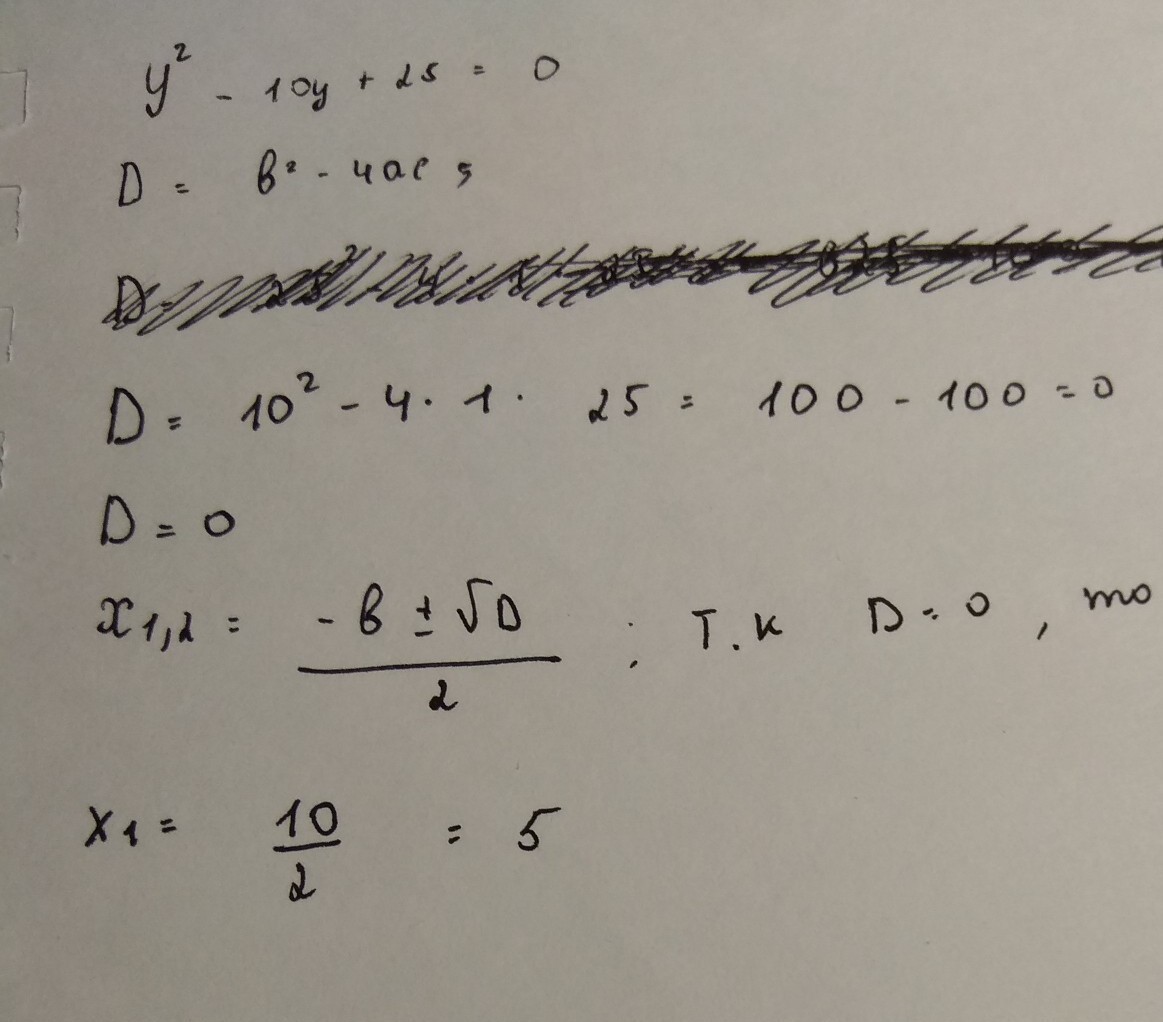 y² - 10y + 25 = 0
D = в² - 4ac ;
D = 10² - 4 · 1 · 25 = 100 - 100 = 0
D = 0
x1,2 = (-в ± √D) / 2 ; Т.к D = 0 , то
x1 = 10 / 2 = 5